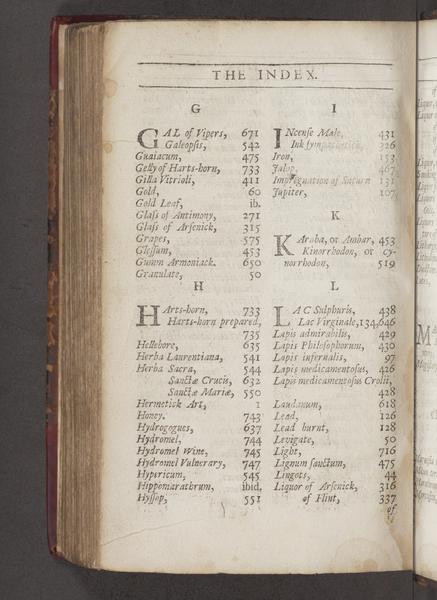 THE INDEX.
G
GAL of Vipers, 671
Galeopsis, 542
Guaiacum, 475
Gelly of Harts-horn, 733
Gilla Vitrioli, 411
Gold, 60
Gold Leaf, ib.
Glass of Antimony, 271
Glass of Arsenick, 315
Grapes, 575
Glessum, 453
Gumm Armoniack. 650
Granulate, 50
H
HArts-horn, 733
Harts-horn prepared,
735
Hellebore, 635
Herba Laurentiana, 541
Herba Sacra, 544
Sanctæ Crucis, 632
Sanctæ Mariæ, 550
Hermetick Art, 1
Honey. 743
Hydrogogues, 637
Hydromel, 744
Hydromel Wine, 745
Hydromel Vulnerary, 747
Hypericum, 545
Hippomarathrum, ibid.
Hyssop, 551
I
INcense Male, 431
Ink sympathetick, 326
Iron, 153
Jalap, 467
Impregnation of Saturn 131
Jupiter, 107
K
KAraba, or Ambar, 453
Kinorrhodon, or cy-
norrhodon, 519
L
LAC Sulphuris, 438
Lac Virginale, 134,646
Lapis admirabilis, 429
Lapis Philosophorum, 430
Lapis infernalis, 97
Lapis medicamentosus, 426
Lapis medicamentosus Crolii,
428
Laudanum, 618
Lead, 126
Lead burnt, 128
Levigate, 50
Light, 716
Lignum sanctum, 475
Lingots, 44
Liquor of Arsenick, 316
of Flint, 337
of